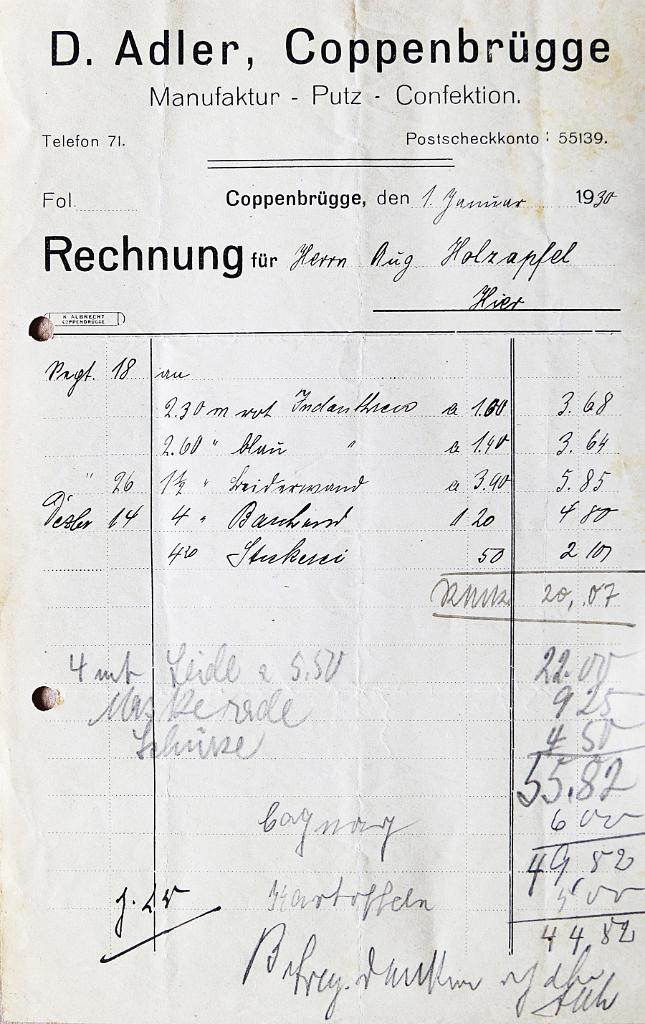 D. Adler, Coppenbrügge
Manufaktur - Putz - Confektion.
Telefon 71. Postscheckkonto: 55139.
Fol. Coppenbrügge, den 1. Januar 1930
Rechnung für Herrn Aug Holzapfel
Hier
K. ALBRECHT COPPENBRÜGGE
Sept. 18 an
2.30 m rot Indanthren a 1.60 3.68
2.60 " blau " a 1.40 3.64
" 26 1½ " Beiderwand a 3.90 5.85
Dezbr 14 4 " Band 1 20 4 80
4 20 Stickerei 50 2 10
RMk 20,07
4 mt Seide a 5.50 22.00
Maskerade 9 25
Schürze 4 50
55.82
6 00
49,82
Kartoffeln 5 00
44,82
Betrag dankend